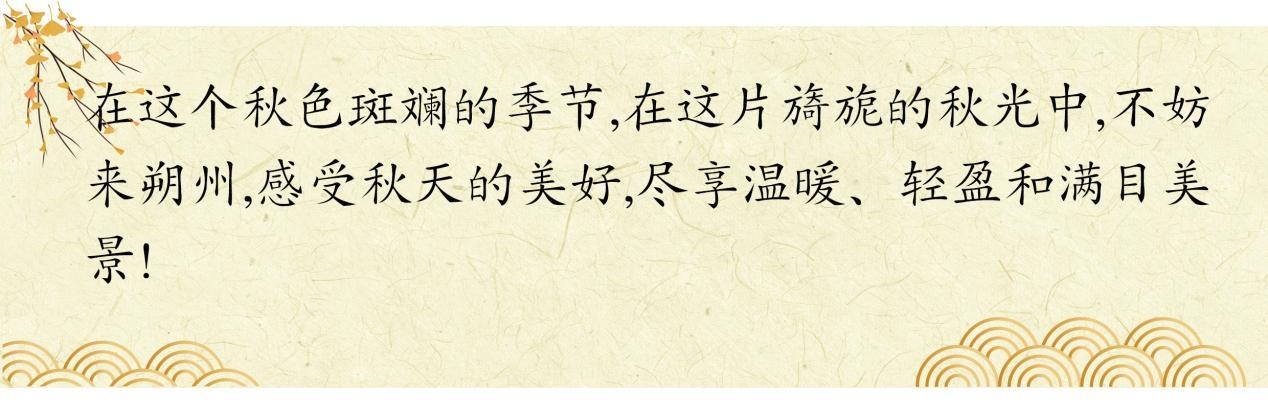 在这个秋色斑斓的季节,在这片旖旎的秋光中,不妨
来朔州,感受秋天的美好,尽享温暖、轻盈和满目美
景!